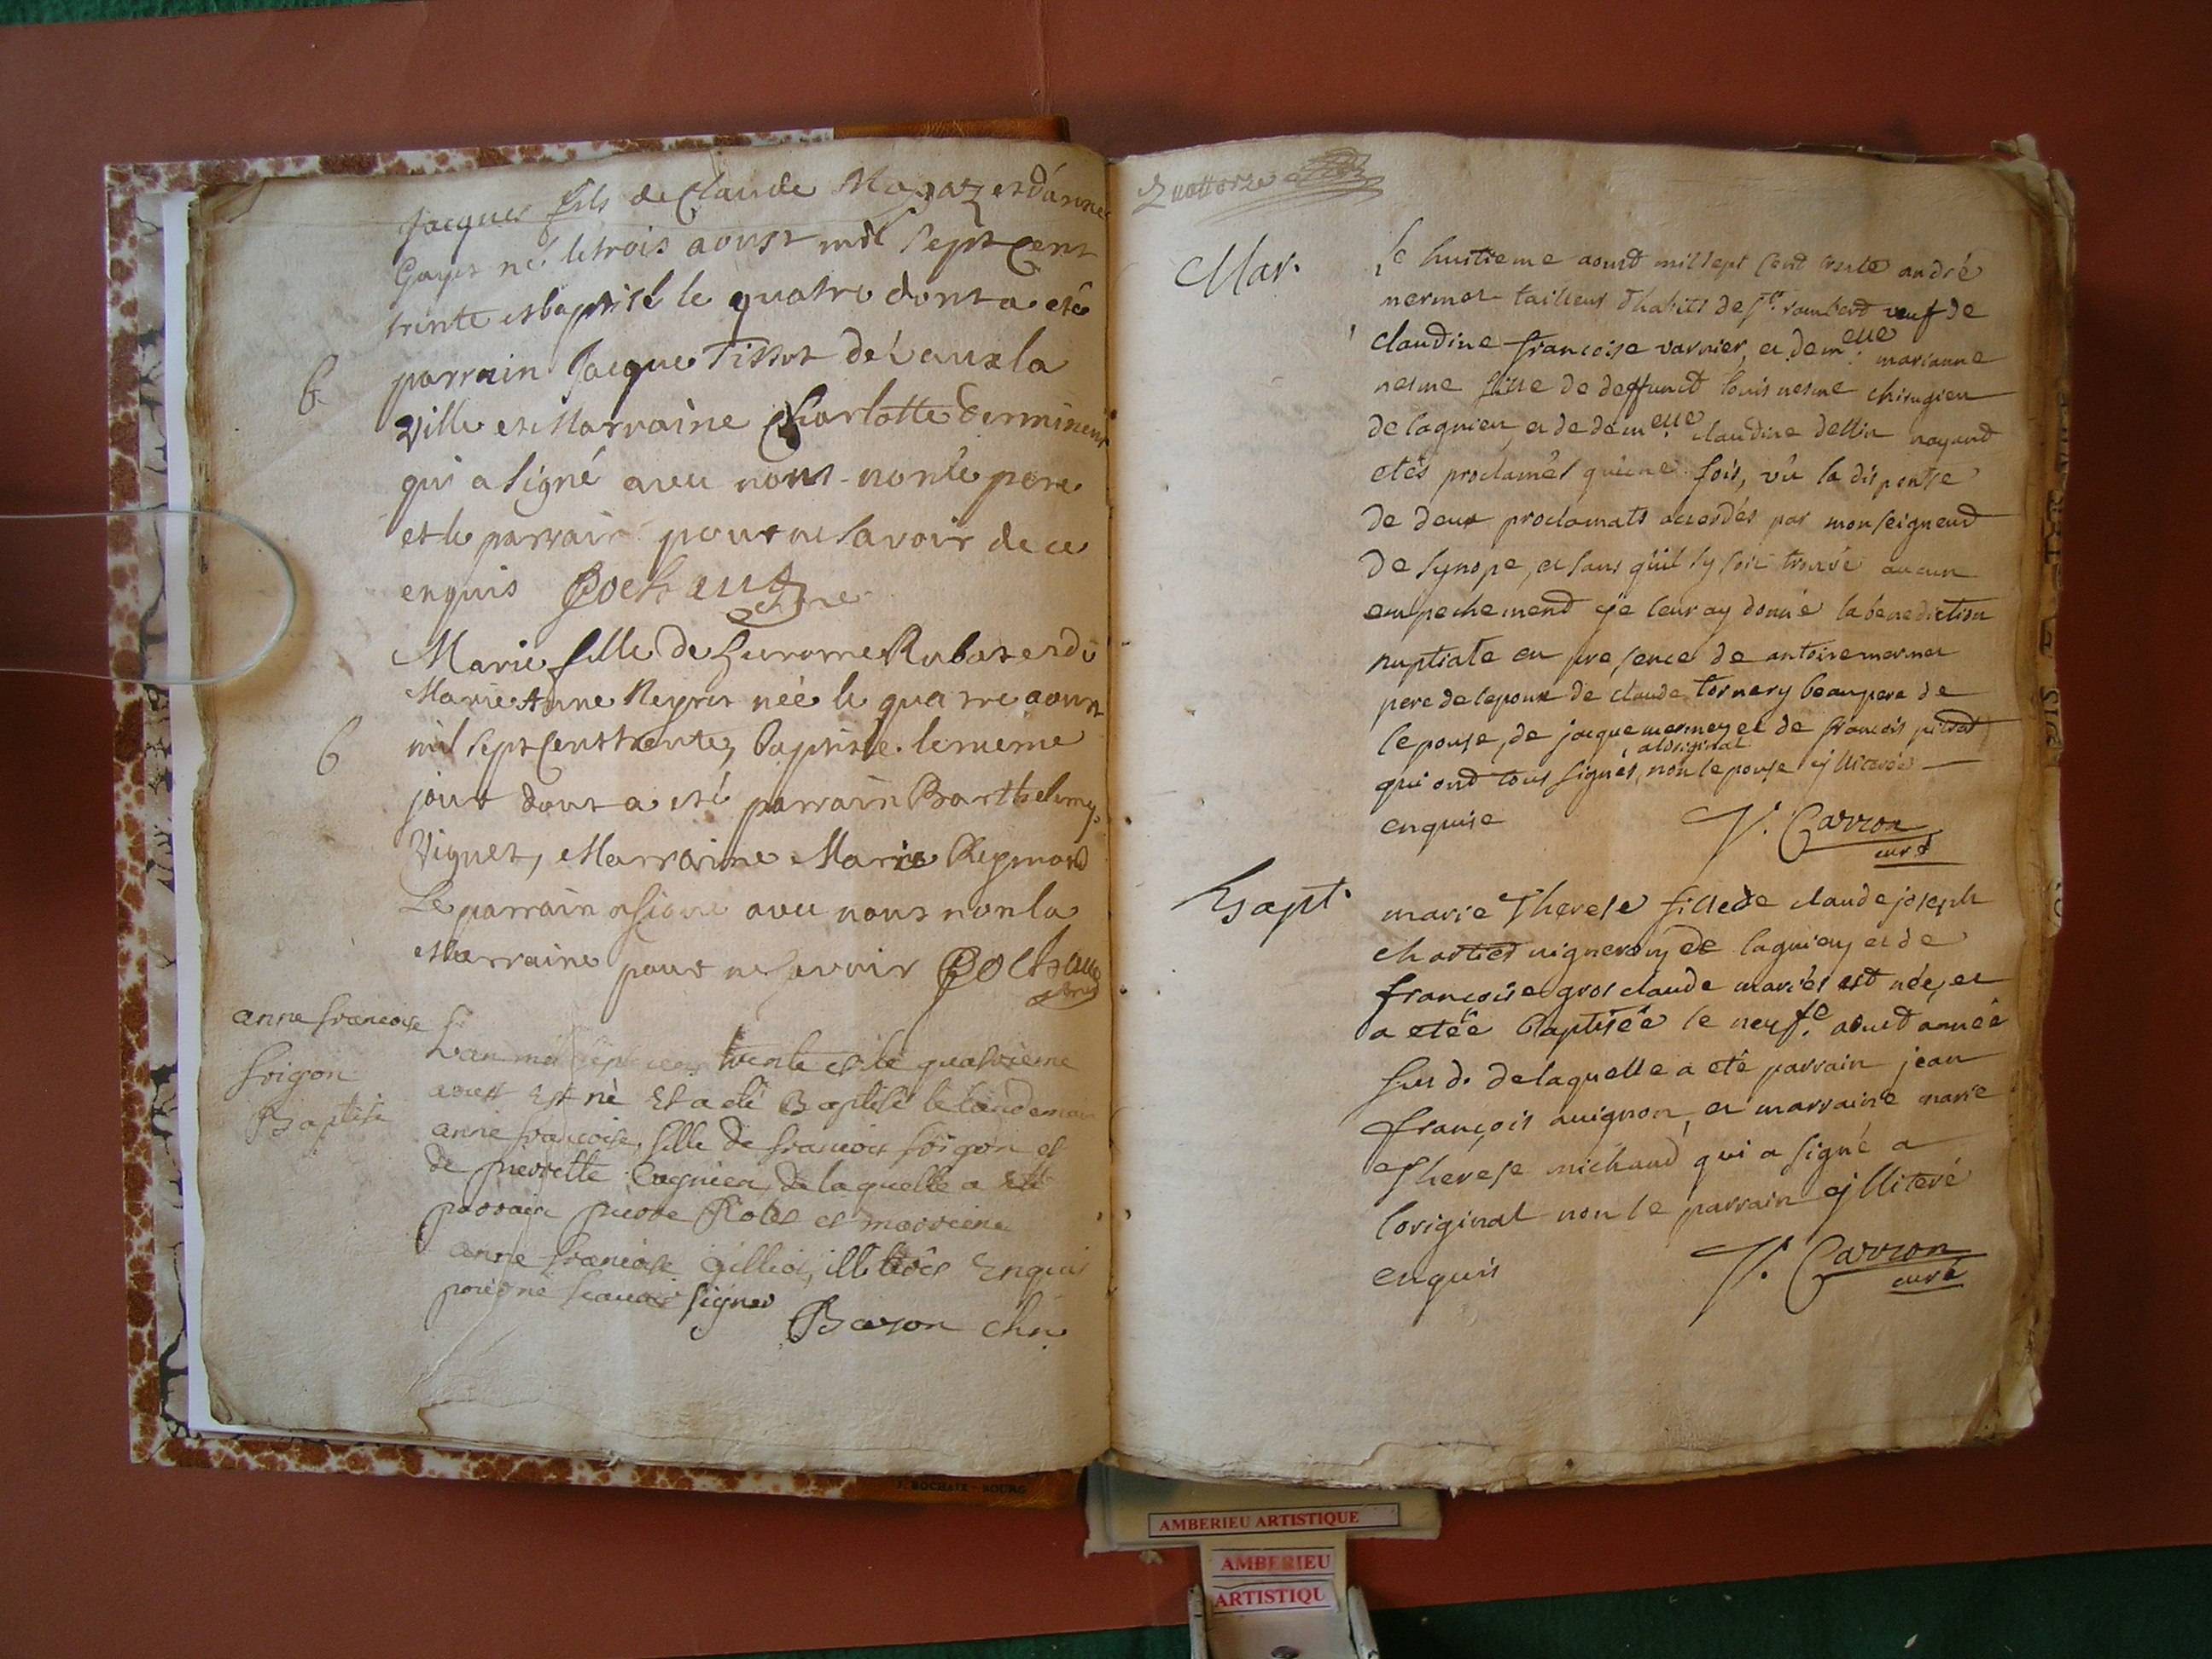 Jacques fils de Claude Magaz et d'anne
Gayet né le trois aoust mil sept cent
trente et baptisé le quatre dont a esté
B parrain Jacque Tissot de Vaux la
ville et Marraine Charlotte
qui a signé avec nous non le pere
et le parrain pour ne savoir de ce
enquis Bochand
Marie fille de Hierome Rubat et de
Marie Anne Reyret née le quatre aoust
B mil sept cent trente, baptisée le meme
jour dont a esté parrain Barthelemy
Viguet, Marraine Marie Reymond
Le parrain a signé avec nous non la
Marraine pour ne savoir Bochand
anne francoise
foigon
Baptise
Lan mil sept cens trente et le quatrieme
aoust Est né Et a eté Baptisé le lendemain
anne francoise, fille de francois foigon et
de pierrette Cagnien, de laquelle a eté
parrain pierre Robet et marreine
anne francoise Gilliot, illiterés Enquis
pour ne scauoir signer
Baron
Quattorze
Mar. le huitieme aoust mil sept cent trente andré
mermet tailleur d'habits de st. rambert veuf de
claudine francoise varnier, et demelle marianne
nesme fille de deffunct louis nesme chirugien
de lagnieu, et de demelle claudine dellin nayant
etés proclamés qu'une fois, vû la dispense
de deux proclamats accordés par monseigneur
de synope, et sans qu'il sy soit trouvé aucun
empechement je leur ay donné la benediction
nuptiale en presence de antoine mermet
pere de lepoux de claude tornery beaupere de
lepouse, de jacque mermet et de francois pitrat
a loriginal
qui ont tous signés, non lepouse jlliterée
enquise J. Carron
curé
Bapt. marie Therese fille de claude joseph
chartier vigneron de lagnieu et de
francoise grosclaude mariés est née, et
a etée Baptisée le neufe. aoust année
sus d. de laquelle a eté parrain jean
françois auignon, et marraine marie
Therese michaud qui a signé a
loriginal non le parrain jlliteré
enquis J. Carron
curé
AMBERIEU ARTISTIQUE
AMBERIEU
ARTISTIQU